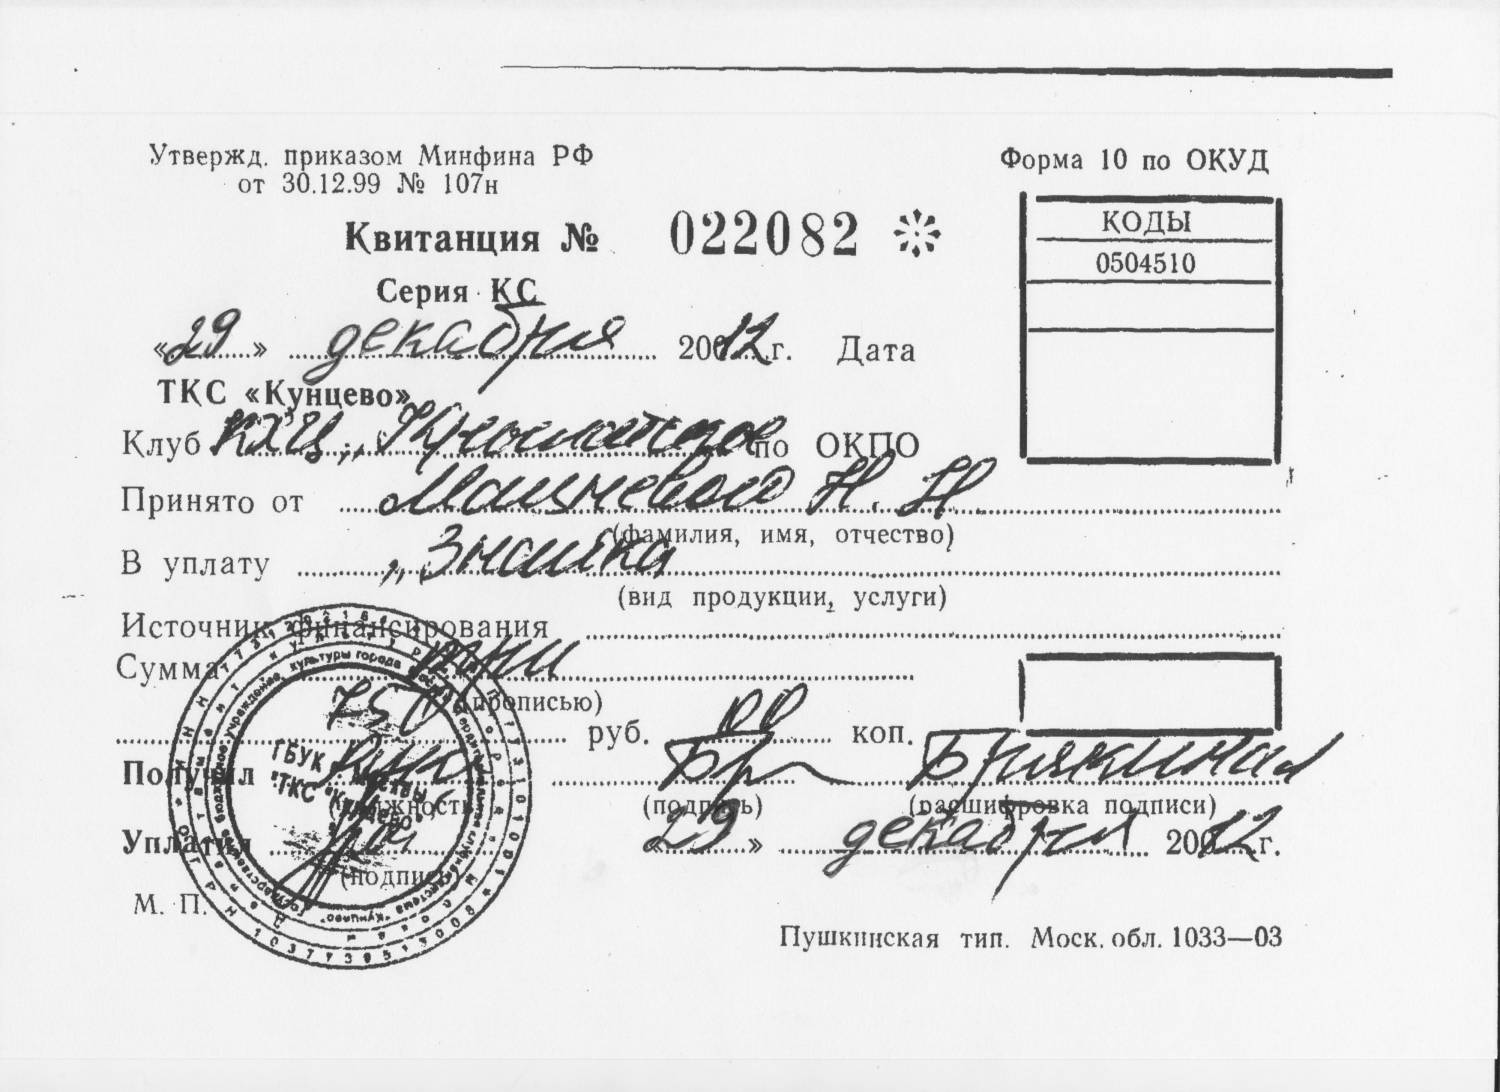 Утвержд. приказом Минфина РФ
от 30.12.99 № 107н
Форма 10 по ОКУД
Квитанция № 022082
КОДЫ
0504510
Серия КС
«29» декабря 2012 г. Дата
ТКС «Кунцево»
Клуб КХЦ по ОКПО
Принято от Мацневой Н. Н.
(фамилия, имя, отчество)
В уплату „Знайка
(вид продукции, услуги)
Источник финансирования
Сумма
(прописью)
750 руб. 00 коп.
Получил
(должность) (подпись) (расшифровка подписи)
Уплатил «29» декабря 2012 г.
(подпись)
М. П.
ГБУК г. Москвы
"ТКС "Кунцево"
Пушкинская тип. Моск. обл. 1033—03